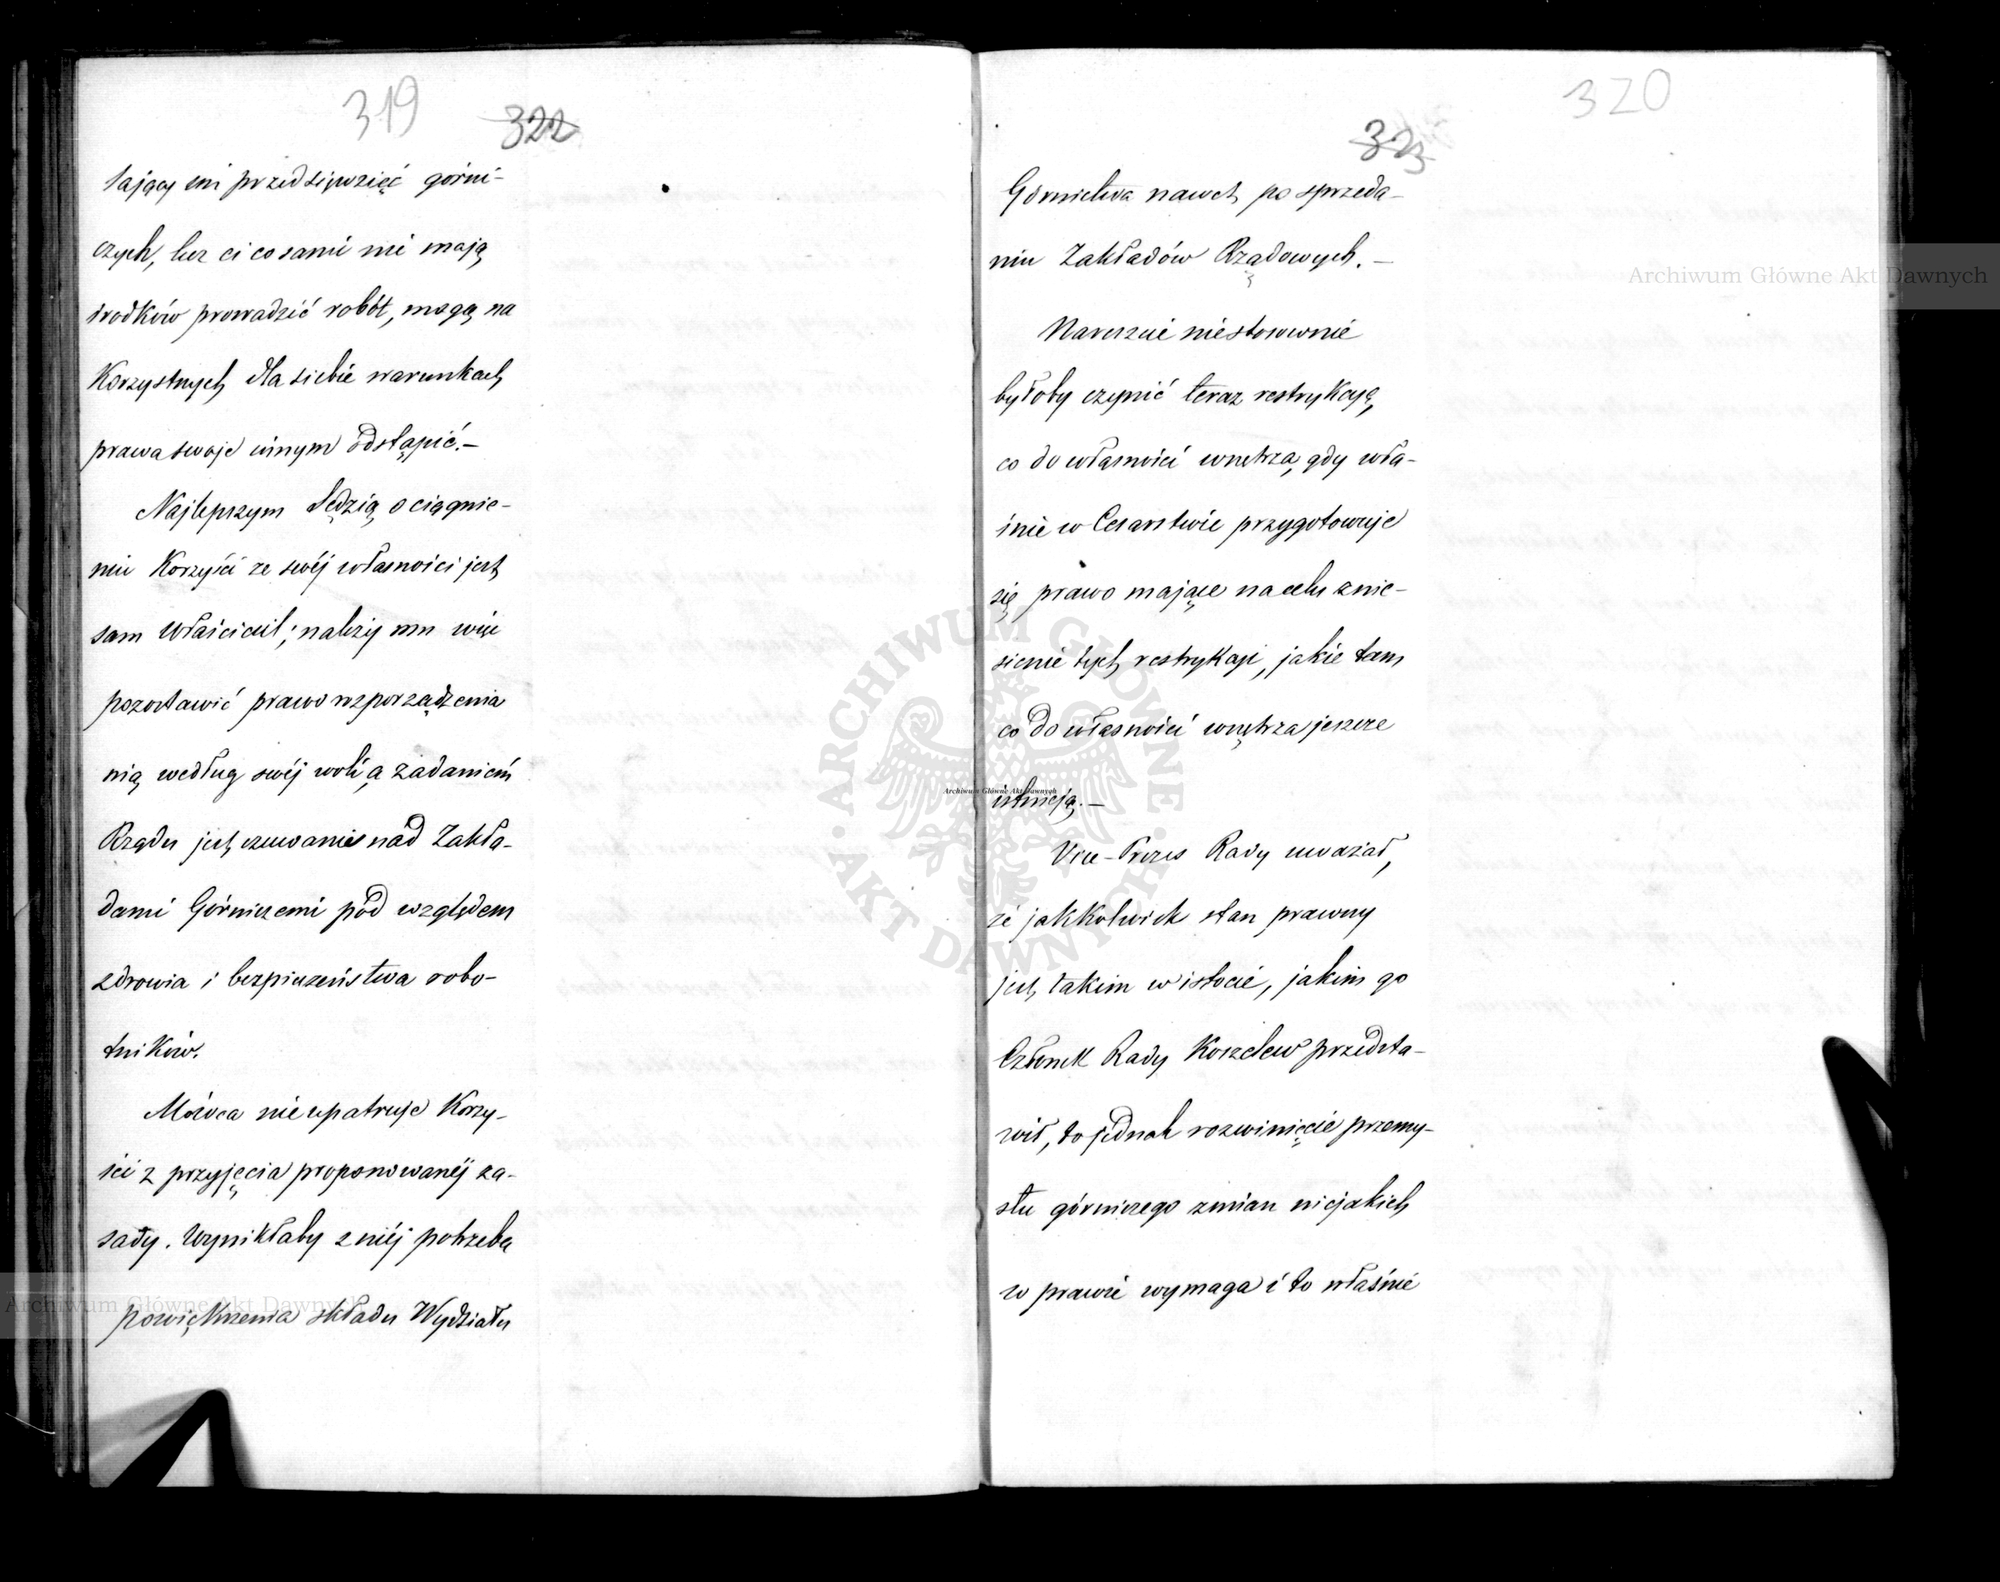 319
322
tający em przedsięwzięć górni-
czych, lecz ci co sami nie mają
środków prowadzić robót, mogą na
Korzystnych dla siebie warunkach
prawa swoje innym odstąpić.—
Najlepszym Sędzią o ciągnie-
niu Korzyści ze swéj własności jest
sam Właściciel; należy mu więc
pozostawić prawo rozporządzenia
nią według swéj woli, a zadaniem
Rządu jest czuwanie nad Zakła-
dami Górniczemi pod względem
zdrowia i bezpieczeństwa robo-
tników.
Mówca nie upatruje Korzy-
ści z przyjęcia proponowanéj za-
sady. Wynikłaby z niéj potrzeba
powiększenia składu Wydziału
320
323
Górnictwa nawet po sprzeda-
niu Zakładów Rządowych.—
Nareszcie niestosownie
byłoby czynić teraz restrykcyą
co do własności wnętrza, gdy wła-
śnie w Cesarstwie przygotowuje
się prawo mające na celu znie-
sienie tych restrykcyi, jakie tam
co do własności wnętrza jeszcze
istnieją.—
Vice-Prezes Rady uważał,
że jakkolwiek stan prawny
jest takim w istocie, jakim go
Członek Rady Koszelew przedsta-
wił, to jednak rozwinięcie przemy-
słu górniczego zmian niejakich
w prawie wymaga i to właśnie
Archiwum Główne Akt Dawnych
Archiwum Główne Akt Dawnych
Archiwum Główne Akt Dawnych
ARCHIWUM GŁÓWNE AKT DAWNYCH